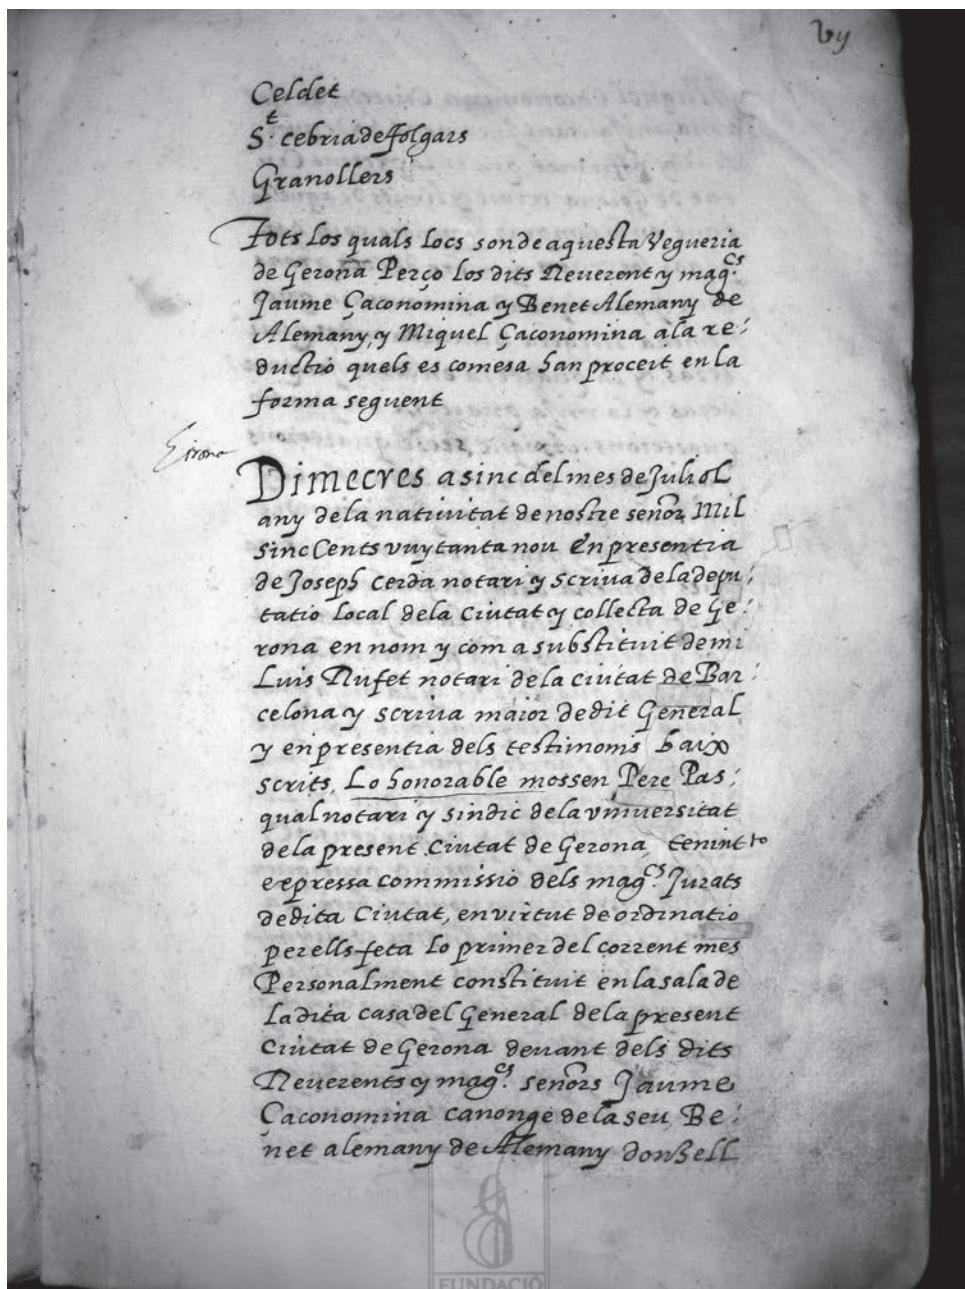 vij
Celdet
St. cebria de folgars
Granollers
Tots los quals locs son de aquesta Vegueria
de Gerona Perço los dits Reuerent y magcs.
Jaume Çaconomina y Benet Alemany de
Alemany, y Miquel Çaconomina a la re:
ductio quels es comesa han proceit en la
forma seguent
Girona
Dimecres a sinc del mes de Juliol
any de la natiuitat de nostre señor Mil
sinc Cents vuytanta nou En presentia
de Joseph Cerda notari y scriua de la depu:
tatio local de la Ciutat y collecta de Ge:
rona en nom y com a substituit de mi
Luis Rufet notari de la ciutat de Bar:
celona y scriua maior de dit General
y en presentia dels testimonis baix
scrits, Lo honorable mossen Pere Pas:
qual notari y sindic de la vniuersitat
de la present Ciutat de Gerona, tenint to
expressa commissio dels magcs. Jurats
de dita Ciutat, en virtut de ordinatio
per ells feta lo primer del corrent mes
Personalment constituit en la sala de
la dita casa del General de la present
Ciutat de Gerona deuant dels dits
Reuerents y magcs. señors Jaume
Çaconomina canonge de la seu Be:
net alemany de Alemany donzell
FUNDACIÓ